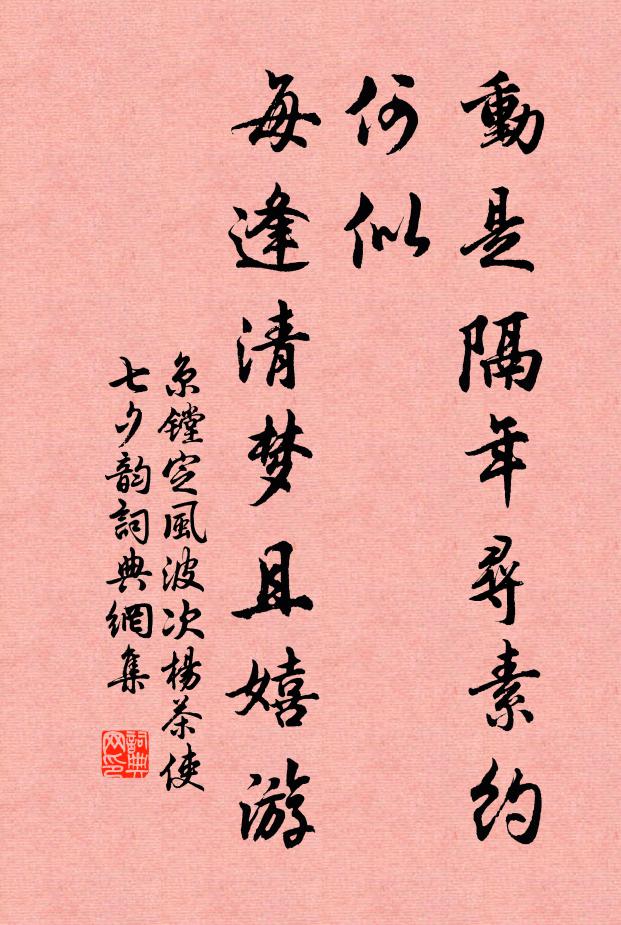 動是隔年尋素約
何似
每逢清梦且嬉游
京镗定風波次楊茶使
七夕韵詞典網集
詞典网印